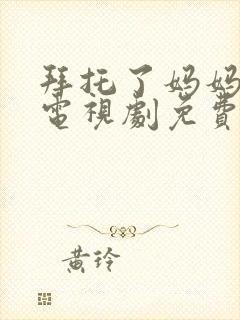 拜托了妈妈
電視劇免費
黄玲